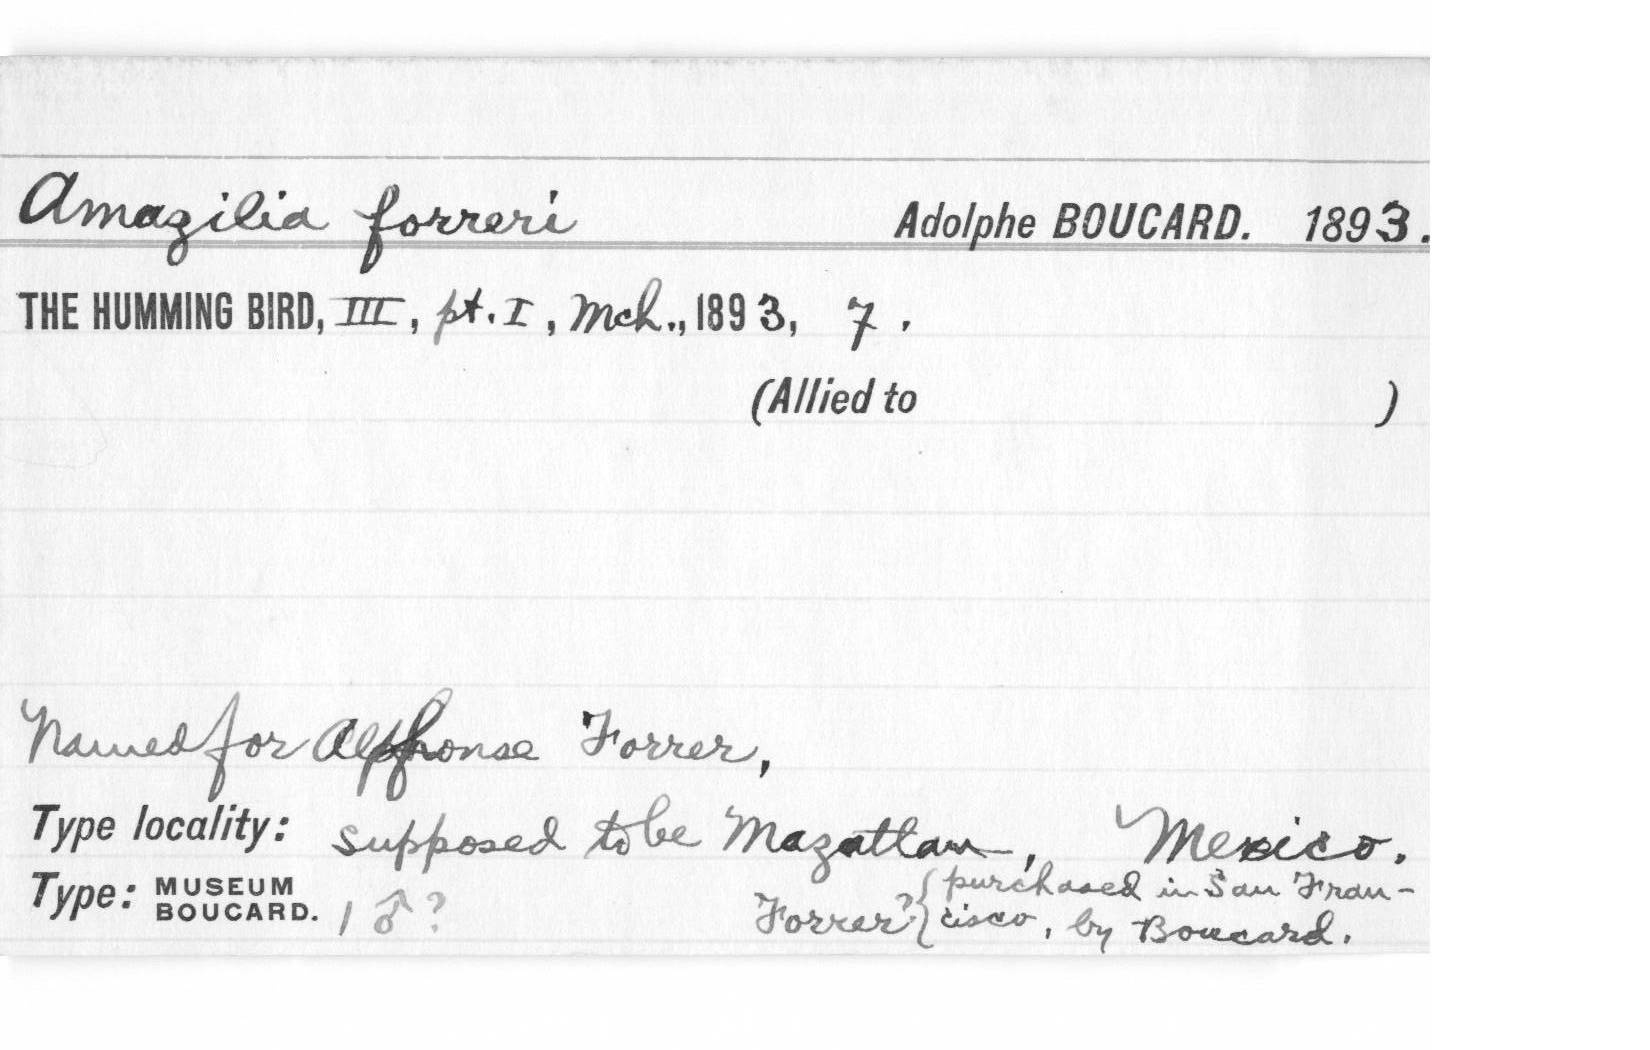 Amazilia forreri Adolphe BOUCARD. 1893.
THE HUMMING BIRD, III, pt. I, Mch., 1893, 7.
(Allied to )
Named for Alphonse Forrer,
Type locality: supposed to be Mazatlan, Mexico.
Type: MUSEUM BOUCARD. 1 ♂? Forrer? { purchased in San Fran-
cisco, by Boucard.